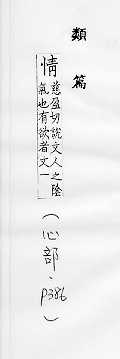 類篇
情
慈盈切說文人之陰
氣也有欲者文一
(心部、P386)